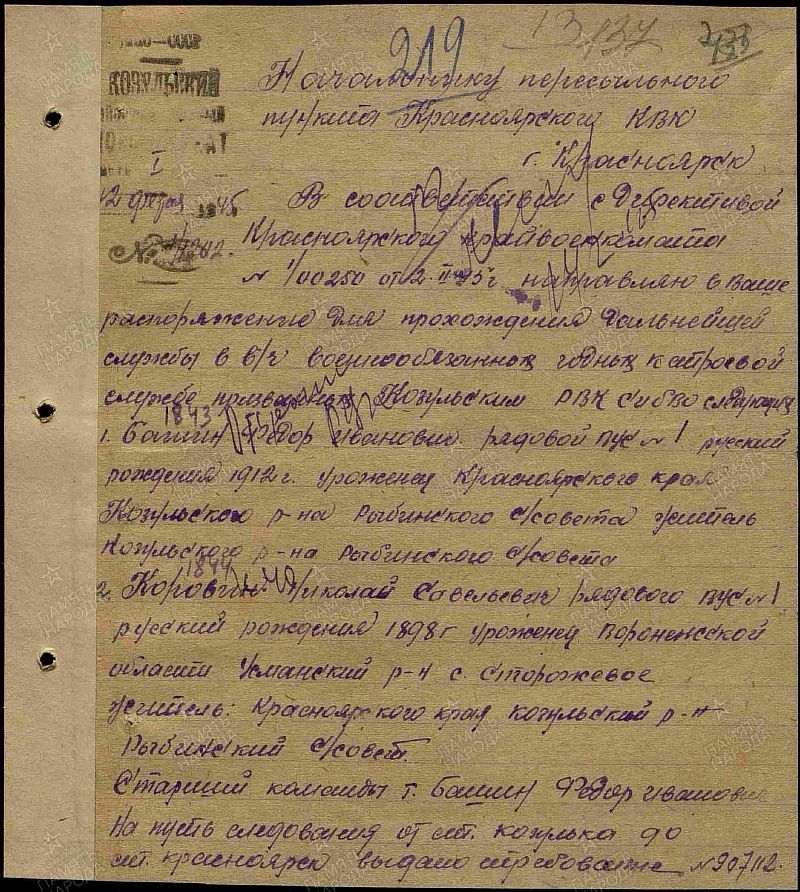 219
13,137
КОЗУЛЬСКИЙ
I
12 февраля 1945
№ 1/202.
Начальнику пересыльного
пункта Красноярского КВК
г. Красноярск
В соответствии с Директивой
Красноярского Крайвоенкомата
№ 1/00250 от 2.II-45г. направляю в Ваше
распоряжение для прохождения дальнейшей
службы в в/ч военнообязанных годных к строевой
службе призванных Козульским РВК СибВО следующих
1843
1. Башин Федор Иванович рядовой ВУС №1 русский
рождения 1912 г. уроженец Красноярского края
Козульского р-на Рыбинского с/совета житель
Козульского р-на Рыбинского с/совета
1844
2. Коровин Николай Савельевич рядового ВУС №1
русский рождения 1898 г уроженец Воронежской
области Усманский р-н с. Сторожевое
житель: Красноярского края Козульский р-н
Рыбинский с/совет.
Старший команды т. Башин Федор Иванович
На путь следования от ст. Козулька до
ст. Красноярск выдано требование №907112.